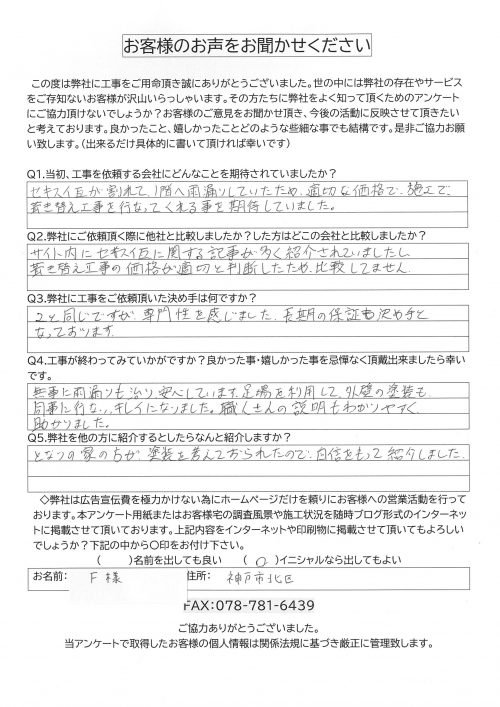 お客様のお声をお聞かせください
この度は弊社に工事をご用命頂き誠にありがとうございました。世の中には弊社の存在やサービス
をご存知ないお客様が沢山いらっしゃいます。その方たちに弊社をよく知って頂くためのアンケート
にご協力頂けないでしょうか？お客様のご意見をお聞かせ頂き、今後の活動に反映させて頂きたい
と考えております。良かったこと、嬉しかったことどのような些細な事でも結構です。是非ご協力お願
い致します。（出来るだけ具体的に書いて頂ければ幸いです）
Q1.当初、工事を依頼する会社にどんなことを期待されていましたか？
セキスイ瓦が割れて、1階へ雨漏りしていたため、適切な価格で、施工で、
葺き替え工事を行なってくれる事を期待していました。
Q2.弊社にご依頼頂く際に他社と比較しましたか？した方はどこの会社と比較しましたか？
サイト内にセキスイ瓦に関する記事が多く紹介されていましたし、
葺き替え工事の価格が適切と判断したため、比較してません。
Q3.弊社に工事をご依頼頂いた決め手は何ですか？
2と同じですが専門性を感じました。長期の保証も決め手と
なっております。
Q4.工事が終わってみていかがですか？良かった事・嬉しかった事を忌憚なく頂戴出来ましたら幸い
です。
無事に雨漏りも治り、安心しています。足場を利用して、外壁の塗装も
同事に行ない、キレイになりました。職人さんの説明もわかりやすく、
助かりました。
Q5.弊社を他の方に紹介するとしたらなんと紹介しますか？
となりの家の方が塗装を考えておられたので、自信をもって紹介しました。
◇弊社は広告宣伝費を極力かけない為にホームページだけを頼りにお客様への営業活動を行って
おります。本アンケート用紙またはお客様宅の調査風景や施工状況を随時ブログ形式のインターネッ
トに掲載させて頂いております。上記内容をインターネットや印刷物に掲載させて頂いてもよろしい
でしょうか？下記の中から〇印をお付け下さい。
（　　）名前を出しても良い　（ ○ ）イニシャルなら出してもよい
お名前: F 様 住所: 神戸市北区
FAX:078-781-6439
ご協力ありがとうございました。
当アンケートで取得したお客様の個人情報は関係法規に基づき厳正に管理致します。